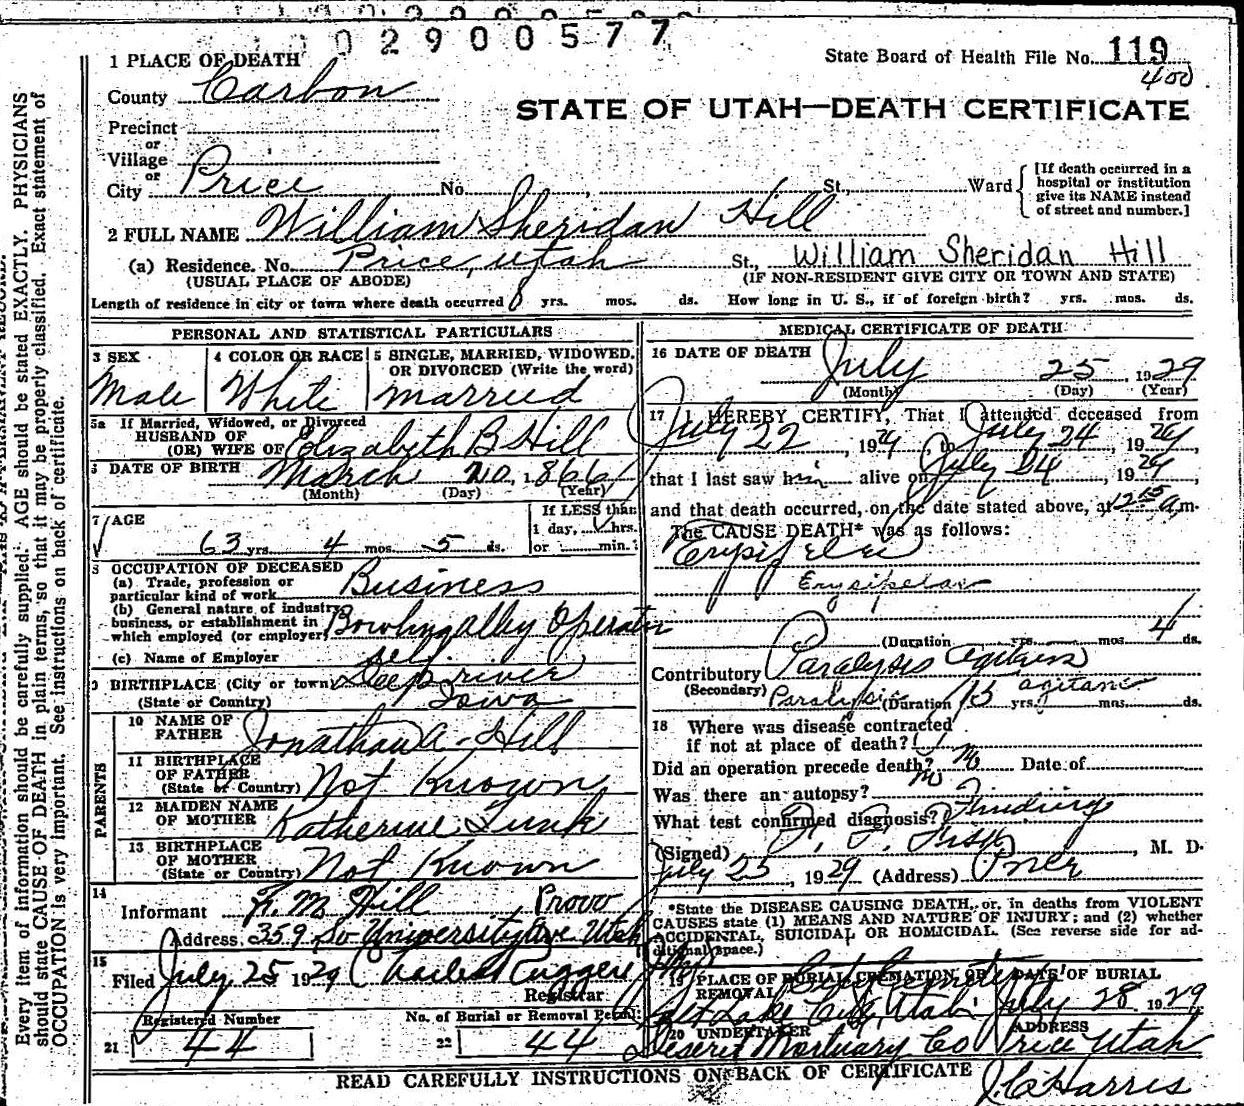 0 2 9 0 0 5 7 7
1 PLACE OF DEATH
State Board of Health File No. 119
400
County Carbon
STATE OF UTAH—DEATH CERTIFICATE
Precinct
or
Village
or
City Price No. St., Ward
[If death occurred in a hospital or institution give its NAME instead of street and number.]
2 FULL NAME William Sheridan Hill
(a) Residence. No. Price, Utah St., William Sheridan Hill
(USUAL PLACE OF ABODE) (IF NON-RESIDENT GIVE CITY OR TOWN AND STATE)
Length of residence in city or town where death occurred 8 yrs. mos. ds. How long in U. S., if of foreign birth? yrs. mos. ds.
PERSONAL AND STATISTICAL PARTICULARS
3 SEX
Male
4 COLOR OR RACE
White
5 SINGLE, MARRIED, WIDOWED, OR DIVORCED (Write the word)
married
5a If Married, Widowed, or Divorced
HUSBAND OF
(OR) WIFE OF Elizabeth B Hill
6 DATE OF BIRTH March 20, 1866
(Month) (Day) (Year)
7 AGE
63 yrs. 4 mos. 5 ds.
If LESS than
1 day, hrs.
or min.
8 OCCUPATION OF DECEASED
(a) Trade, profession or particular kind of work Business
(b) General nature of industry, business, or establishment in which employed (or employer) Bowling alley Operator
(c) Name of Employer self.
9 BIRTHPLACE (City or town) Deep river
(State or Country) Iowa
PARENTS
10 NAME OF FATHER Jonathan A. Hill
11 BIRTHPLACE OF FATHER (State or Country) Not Known
12 MAIDEN NAME OF MOTHER Katherine
13 BIRTHPLACE OF MOTHER (State or Country) Not Known
14
Informant M Hill Provo
Address 359 So University Ave Utah
15
Filed July 25 1929
Registrar
Registered Number
21 44
No. of Burial or Removal Permit
22 44
MEDICAL CERTIFICATE OF DEATH
16 DATE OF DEATH July 25, 1929
(Month) (Day) (Year)
17 I HEREBY CERTIFY, That I attended deceased from
July 22, 1929, to July 24, 1929,
that I last saw him alive on July 24, 1929,
and that death occurred, on the date stated above, at 12 15 a.m.
The CAUSE DEATH* was as follows:
Erysipelas
Erysipelas
(Duration yrs. mos. 4 ds.
Contributory Paralysis agitans
(Secondary) Paralysis agitans
(Duration 15 yrs. mos. ds.
18 Where was disease contracted
if not at place of death?
Did an operation precede death? no Date of
Was there an autopsy? no
What test confirmed diagnosis? Findings
(Signed) Fisk, M. D.
July 25, 1929 (Address) Price
*State the DISEASE CAUSING DEATH, or, in deaths from VIOLENT
CAUSES state (1) MEANS AND NATURE OF INJURY; and (2) whether
ACCIDENTAL, SUICIDAL or HOMICIDAL. (See reverse side for additional space.)
19 PLACE OF BURIAL, CREMATION, OR REMOVAL City Cemetery
Salt Lake City, Utah
DATE OF BURIAL
July 28 1929
20 UNDERTAKER
Deseret Mortuary Co
ADDRESS
Price Utah
READ CAREFULLY INSTRUCTIONS ON BACK OF CERTIFICATE
J. C. Harris
Every item of information should be carefully supplied. AGE should be stated EXACTLY. PHYSICIANS
should state CAUSE OF DEATH in plain terms, so that it may be properly classified. Exact statement of
OCCUPATION is very important. See instructions on back of certificate.